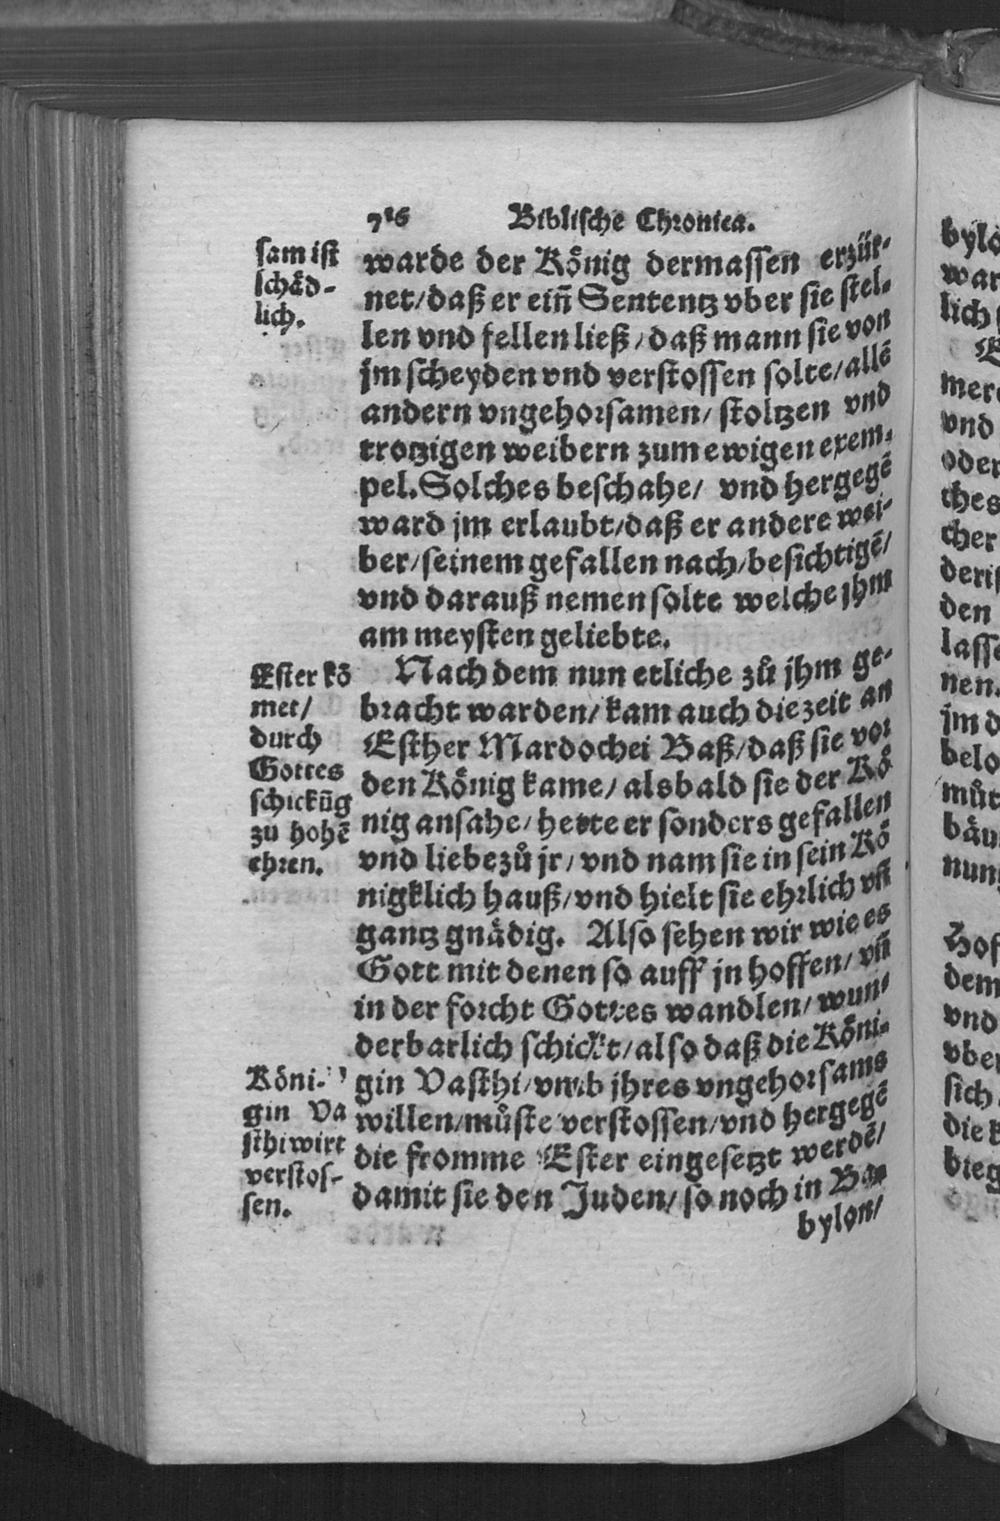 716 Biblische Chronica.
sam ist
schåd-
lich.
warde der Kőnig dermassen erzür-
net/ daß er ein̄ Sententz vber sie stel-
len vnd fellen ließ/ daß mann sie von
jm scheyden vnd verstossen solte/ allē
andern vngehorsamen/ stoltzen vnd
trotzigen weibern zum ewigen exem-
pel. Solches beschahe/ vnd hergegē
ward jm erlaubt/ daß er andere wei-
ber/ seinem gefallen nach/ besichtigē/
vnd darauß nemen solte welche jhm
am meysten geliebte.
Ester kō
met/
durch
Gottes
schickūg
zu hohē
ehren.
Nach dem nun etliche zů jhm ge-
bracht warden/ kam auch die zeit an
Esther Mardochei Baß/ daß sie vor
den Kőnig kame/ alsbald sie der Kő
nig ansahe/ hette er sonders gefallen
vnd liebe zů jr/ vnd nam sie in sein Kő
nigklich hauß/ vnd hielt sie ehrlich vn̄
gantz gnådig. Also sehen wir wie es
Gott mit denen so auff jn hoffen/ vn̄
in der forcht Gottes wandlen/ wun-
derbarlich schickt/ also daß die Kőni-
gin Vasthi/ vmb jhres vngehorsams
willen/ můste verstossen/ vnd hergegē
die fromme Ester eingesetzt werdē/
damit sie den Juden/ so noch in Ba-
Kőni-
gin Va
sthi wirt
verstos-
sen.
bylon/